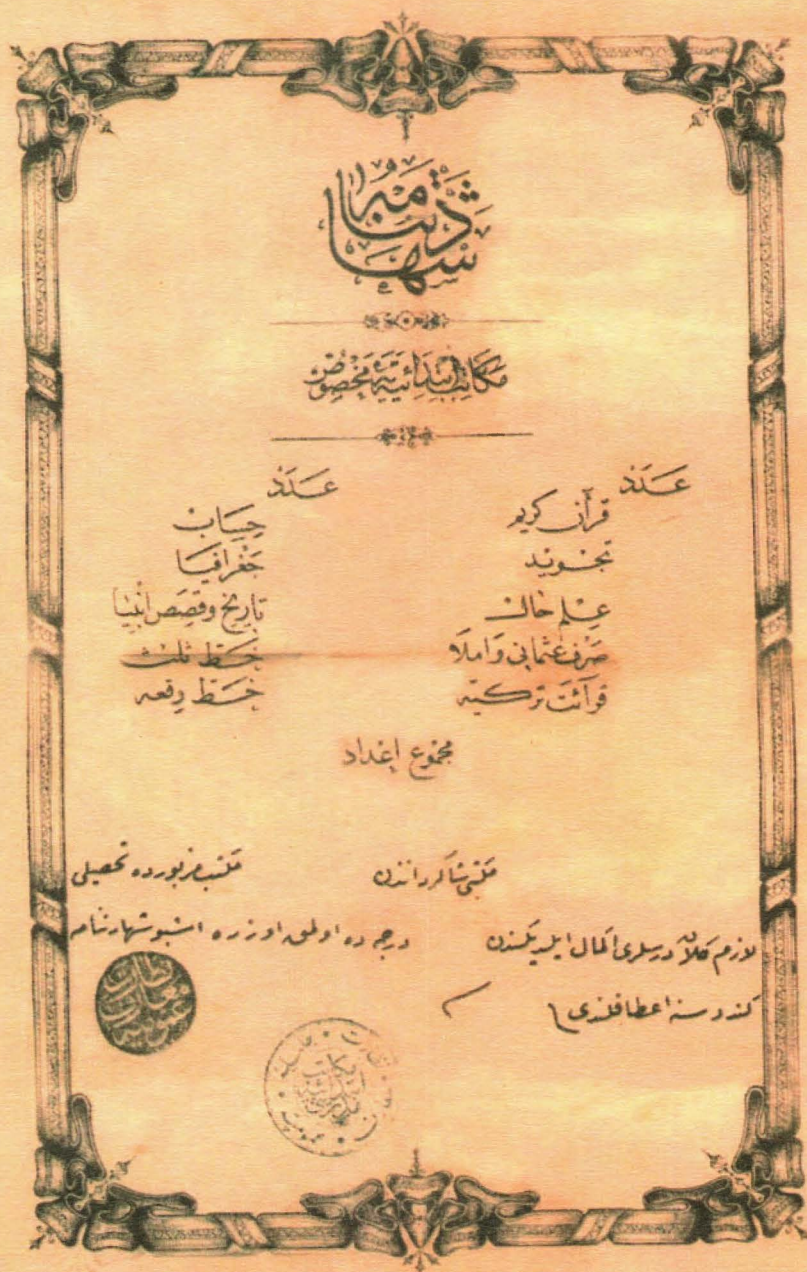 شهادتنامه
مكاتب ابتدائیه‌یه مخصوص
عدد
قرآن كریم
تجوید
علم حال
صرف عثمانی و املا
قرائت تركیه
عدد
حساب
جغرافیا
تاریخ و قصص انبیا
خط ثلث
خط رقعه
مجموع اعداد
مكتبی شاكرداندن مكتب مزبورده تحصیلی
لازم كلان درسلری اكمال ایلدیكندن درجه ده اولمق اوزره اشبو شهادتنامه
كندوسنه اعطا قلندی
مكاتب ابتدائیه